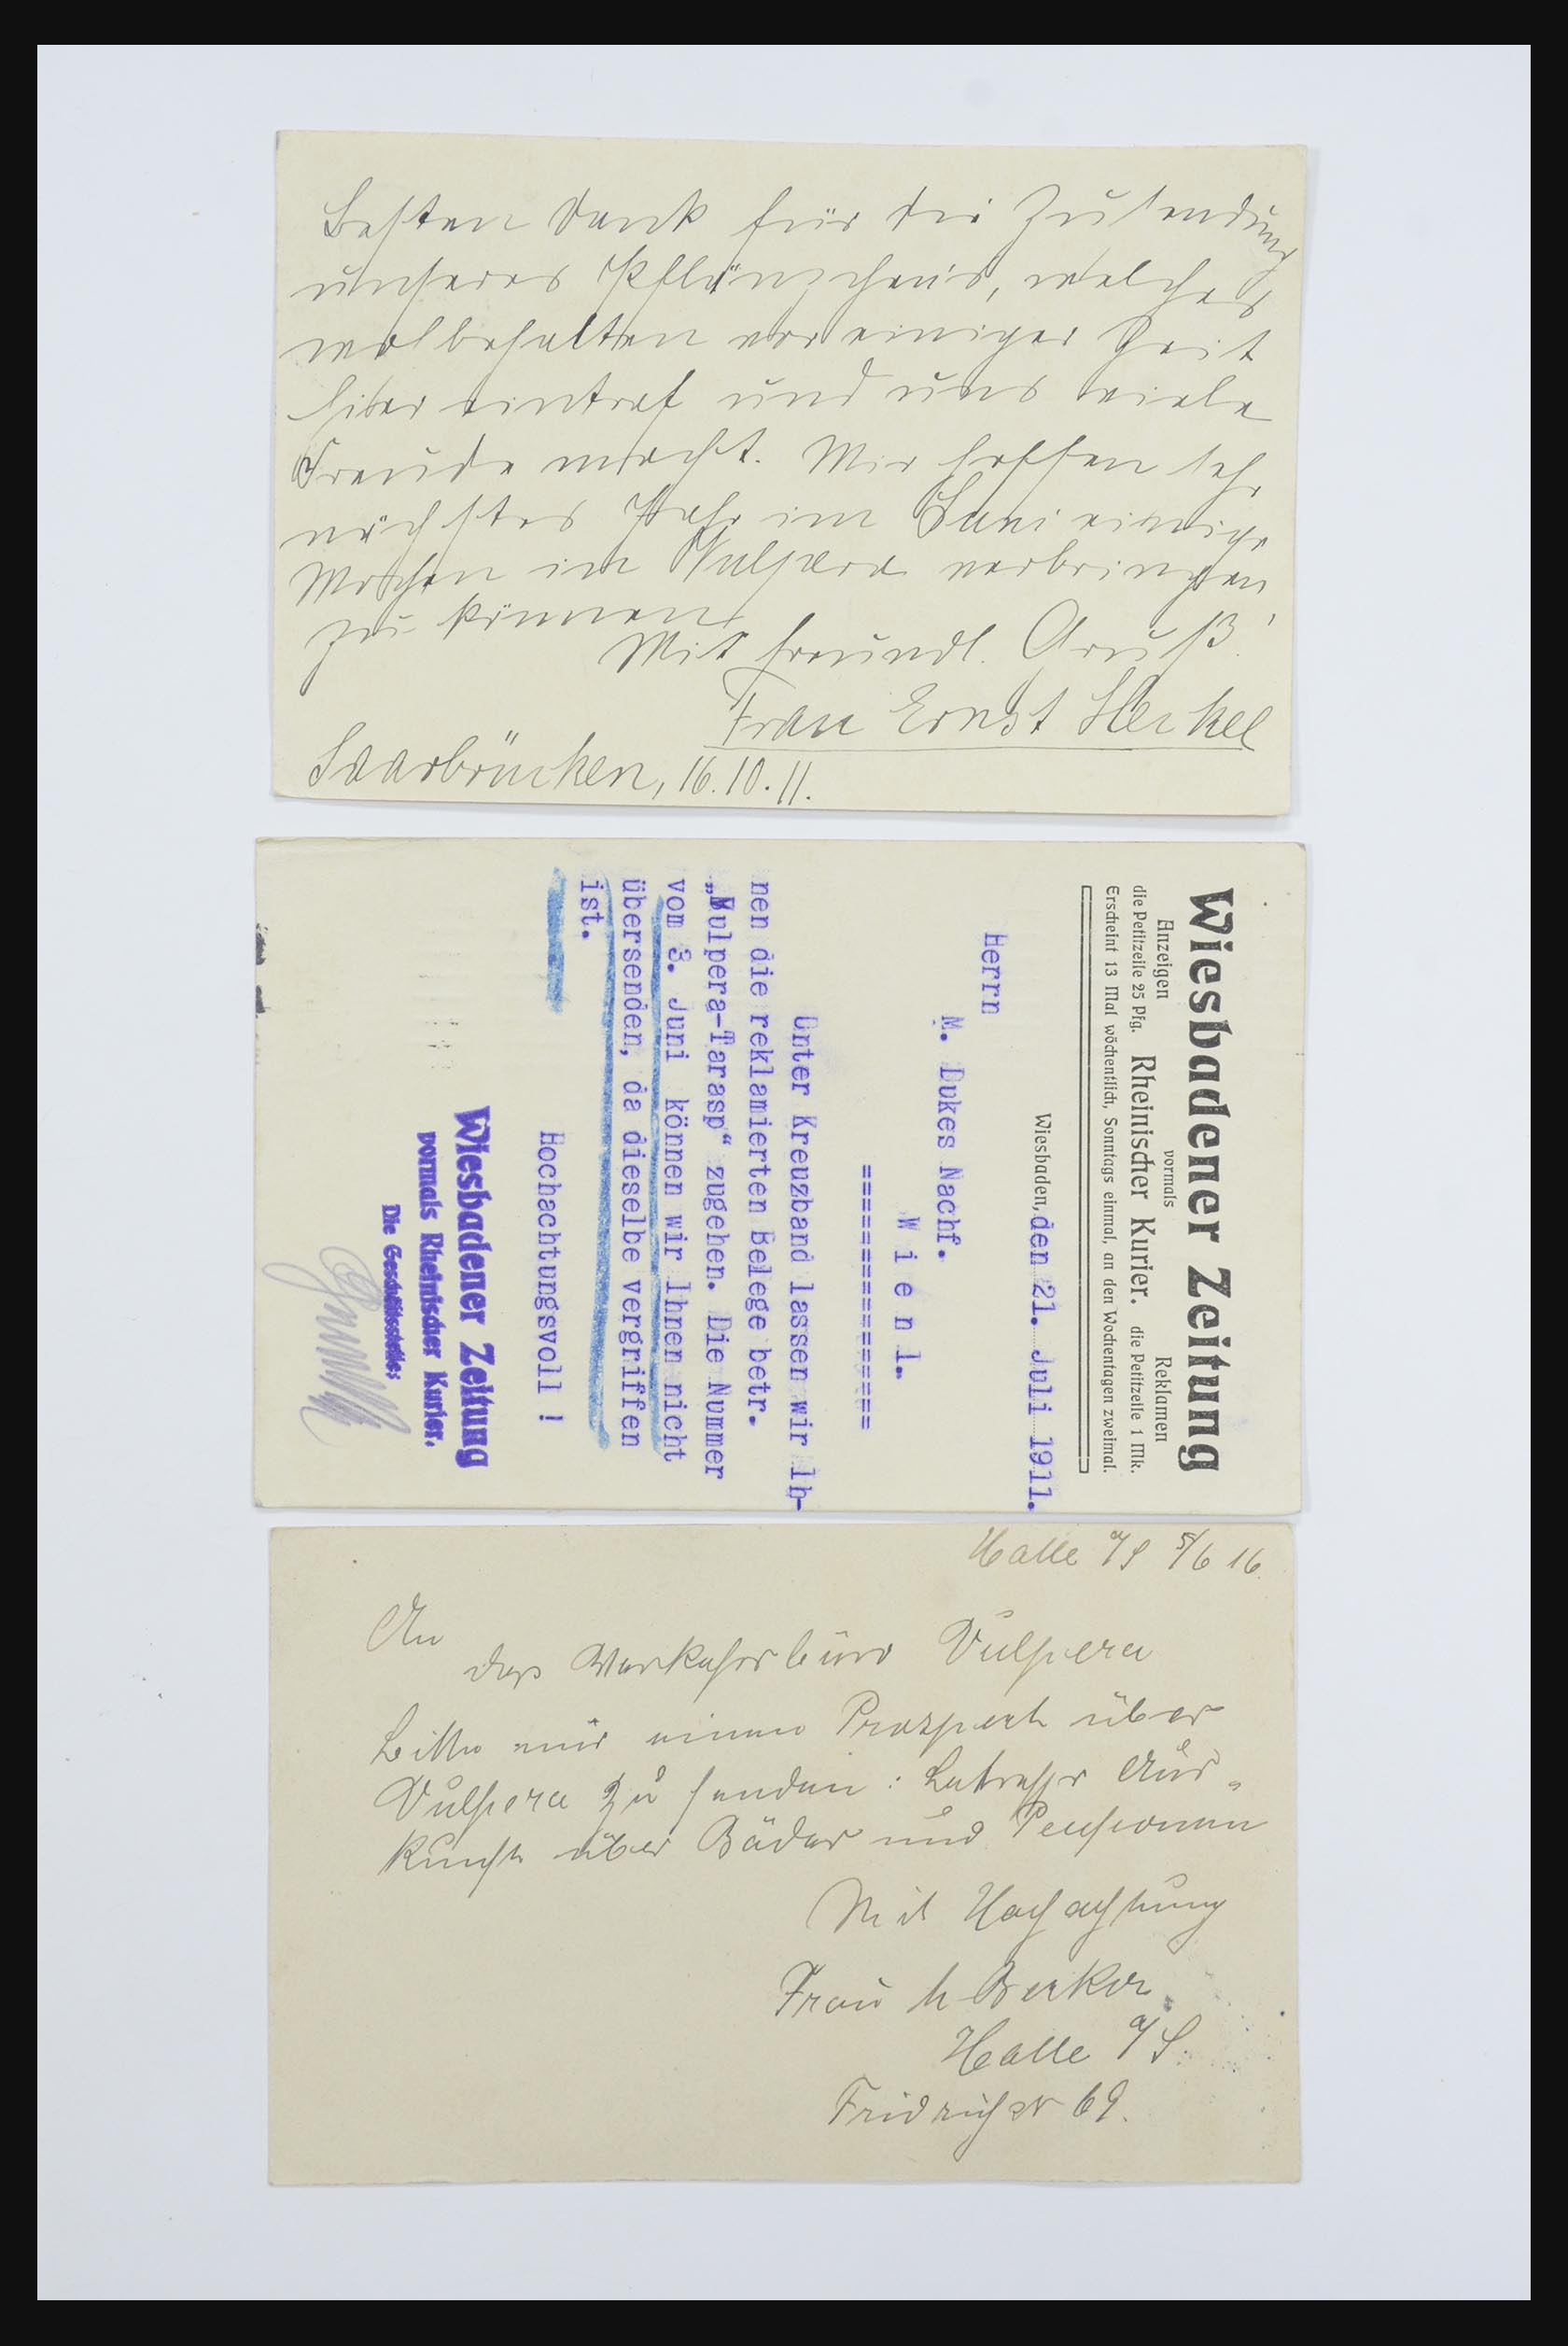 Besten Dank für die Zusendung
unseres Pflänzchens, welches
wolbehalten vor einiger Zeit
hier eintraf und uns viele
Freude macht. Wir hoffen sehr
nächstes Jahr im Juni einige
Wochen in Vulpera verbringen
zu können!
Mit freundl. Gruß.
Frau Ernst Heckel
Saarbrücken, 16.10.11.
Wiesbadener Zeitung
Anzeigen
die Petitzeile 25 Pfg.
vormals
Rheinischer Kurier.
Reklamen
die Petitzeile 1 Mk.
Erscheint 13 Mal wöchentlich, Sonntags einmal, an den Wochentagen zweimal.
Wiesbaden, den 21. Juli 1911.
Herrn
M. Dukes Nachf.
W i e n 1.
====================
Unter Kreuzband lassen wir Ih-
nen die reklamierten Belege betr.
„Vulpera-Tarasp“ zugehen. Die Nummer
vom 3. Juni können wir Ihnen nicht
übersenden, da dieselbe vergriffen
ist.
Hochachtungsvoll !
Wiesbadener Zeitung
vormals Rheinischer Kurier.
Die Geschäftsstelle:
Halle a/S 5/6 16.
An
das Verkehrsbüro Vulpera
Bitte mir einen Prospect über
Vulpera zu senden: betreffs Aus-
kunft über Bäder und Pensionen
Mit Hochachtung
Frau Becker
Halle a/S.
69.